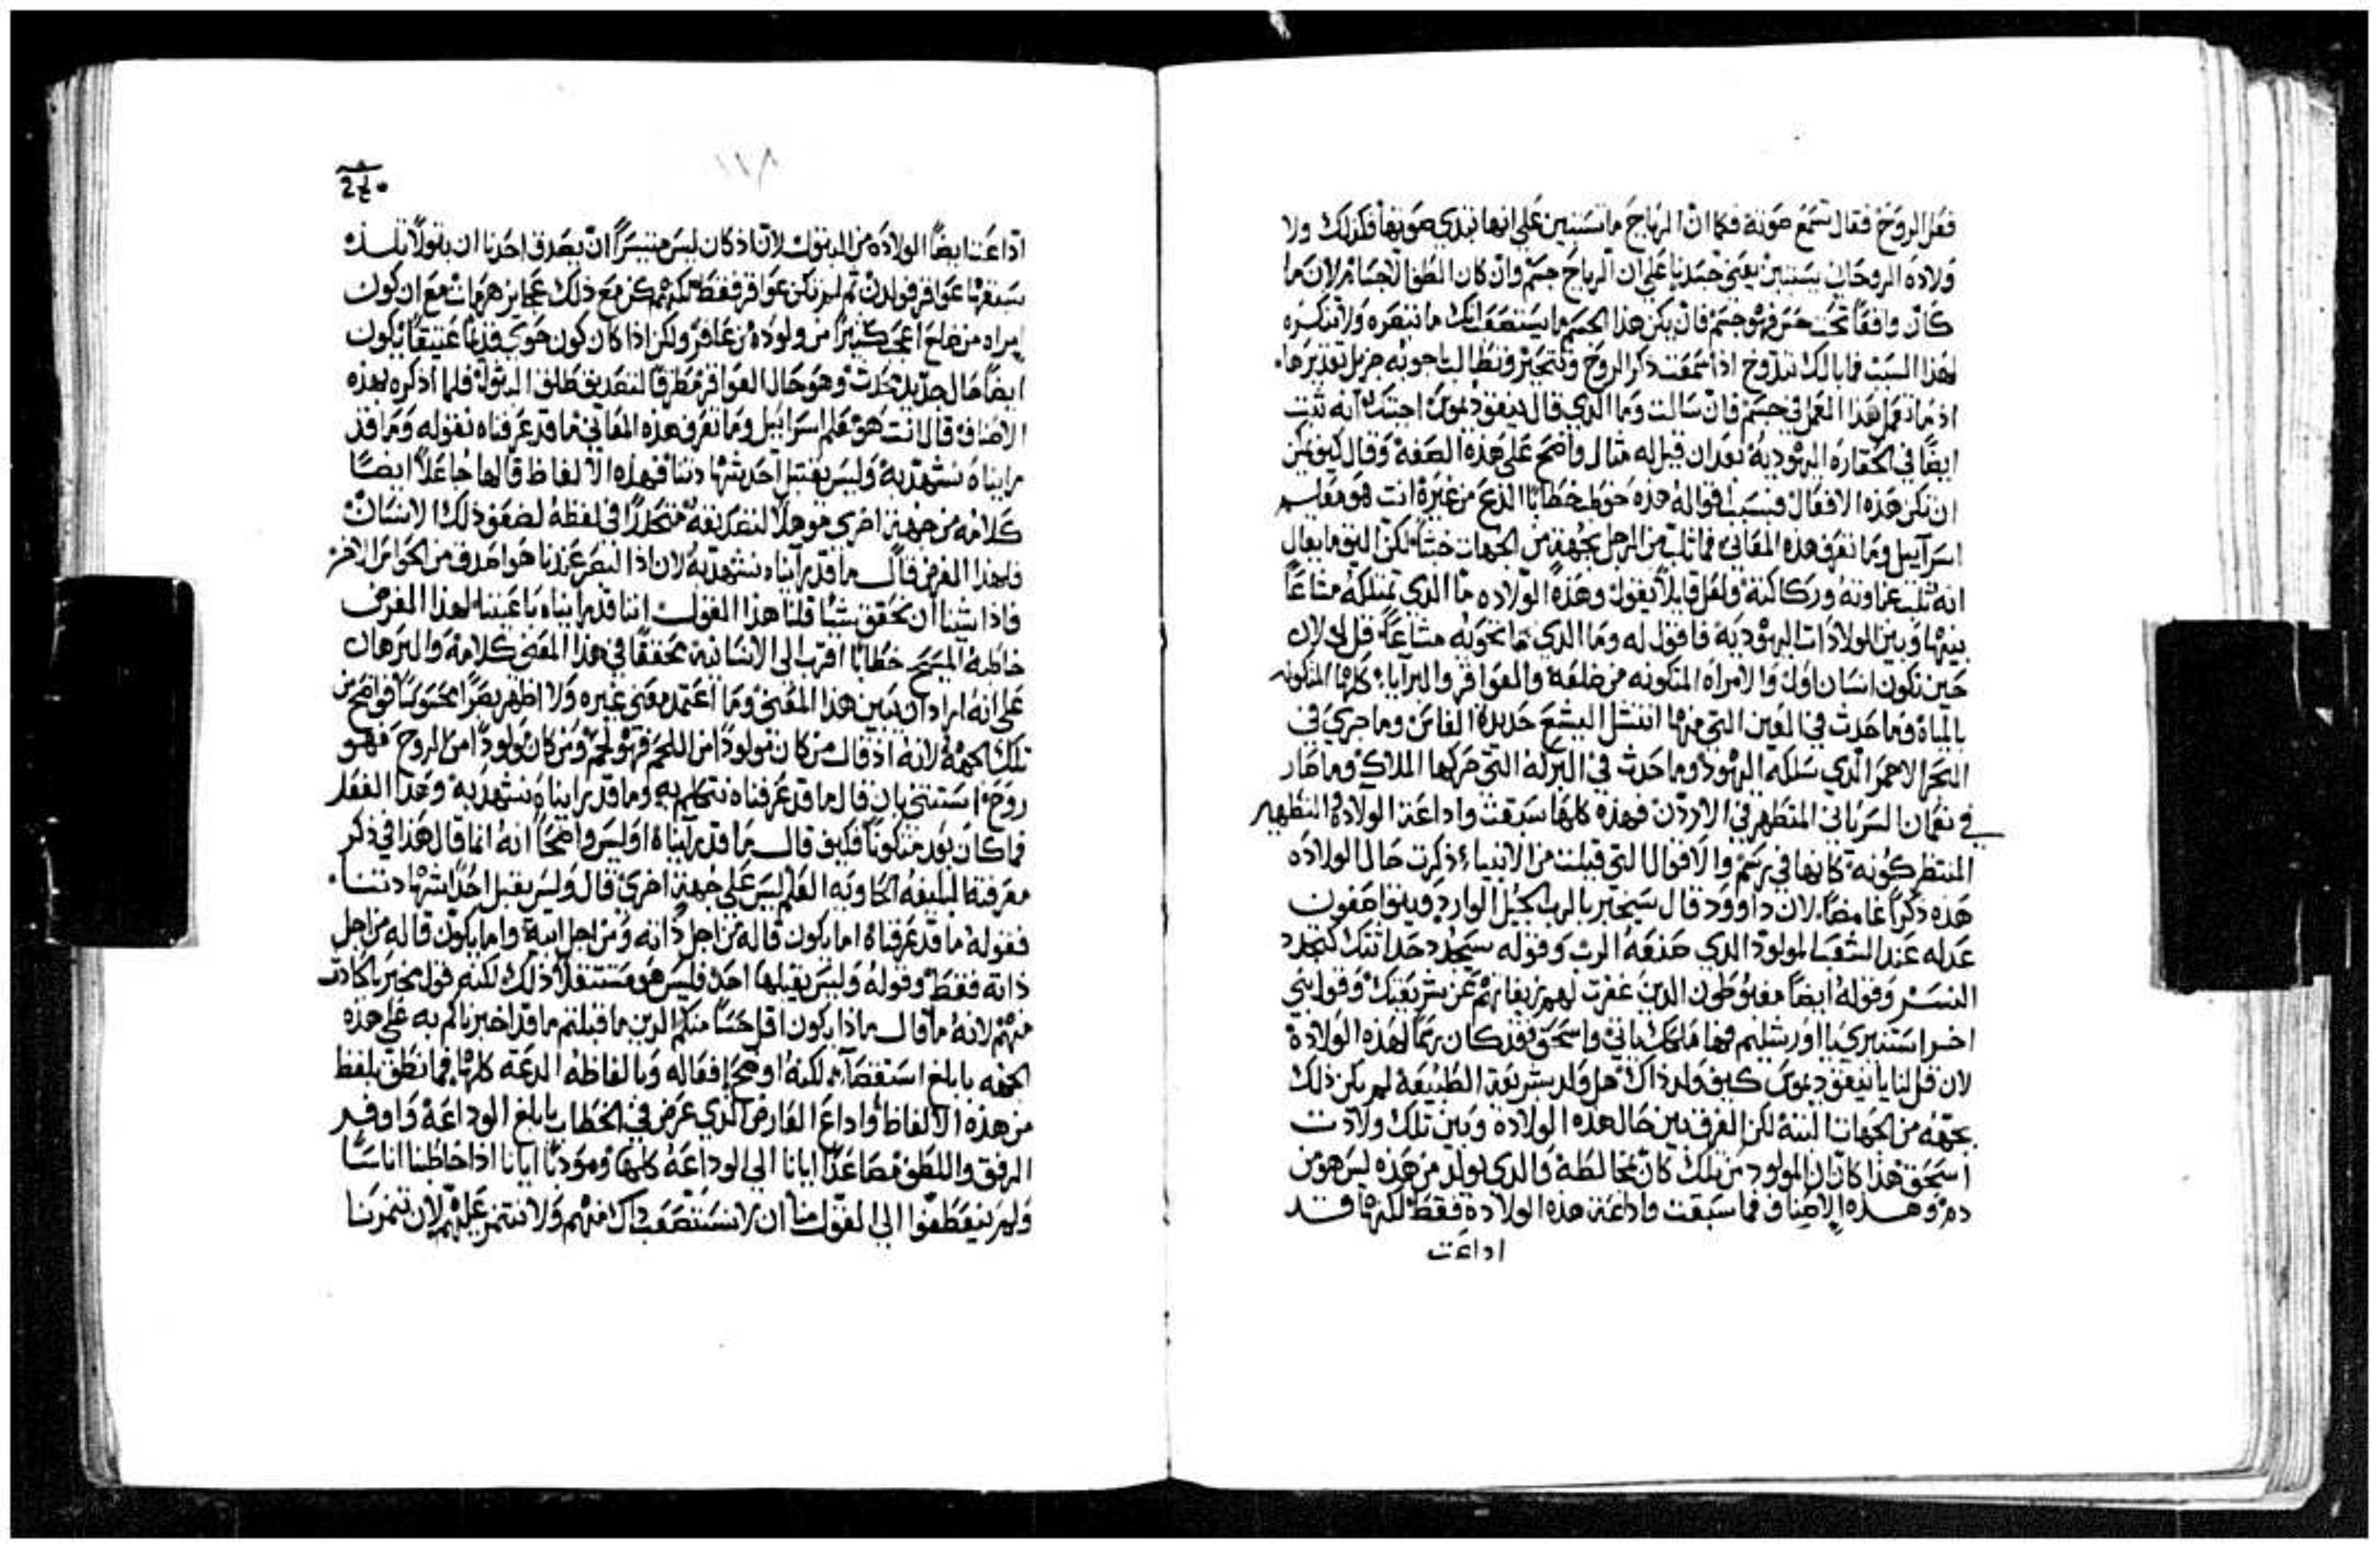 فعل الروح فقال تسمع صوته فكما ان الرياح ما تستبين على انها تبدي صوتها فكذلك ولا
ولادة الروحاني تستبين بعيني جسدنا على ان الرياح جسم وان كان الطف الاجسام لان ما
كان واقفا تحت حس فهو جسم فان يكن هذا الجسم ما يستصعب انك ما تبصره ولا تنكره
لهذا السبب فما بالك تدوخ اذا سمعت ذكر الروح وتتحير وتطالب باجوبه جزيل تقديرها
اذ ما تعمل هذا العمل في جسم فان سالت وما الذي قال نيقوديموس اجبتك انه ثبت
ايضا في الحقاره اليهوديه بعد ان قيل له مثال واضح على هذه الصفه وقال كيف يمكن
ان تكن هذه الافعال فبسبب اقواله هذه خوطب خطابا الذع من غيره انت هو معلم
اسرآييل وما تعرف هذه المعاني فما ثلب من الرجل بجهة من الجهات خبثا لكن اليق ما يقال
انه ثلب غباوته وركاكته ولعل قايلا يقول وهذه الولاده ما الذي تمتلكه مشاعا
بينها وبين الولادات اليهوديه فاقول له وما الذي ما تحويه مشاعا قل لي لان
حين تكون انسان اول والامراه المتكونه من ضلعه والعواقر والبرايا كلها المتكونه
بالماء وما حدث في العين التي منها انتشل اليشع حديدة الفاس وما جري في
البحر الاحمر الذي سلكه اليهود وما حدث في البركه التي حركها الملاك وما صار
في نعمان السرياني المتطهر في الاردن فهذه كلها سبقت واداعت الولاده والتطهير
المنتظر كونه كانها في رسم والاقوال التي قيلت من الانبياء ذكرت حال الولاده
هذه ذكرا غامضا لان داوود قال سيخبر بالرب الجيل الوارد وينوا صفون
عدله عند الشعب المولود الذي صنعه الرب وقوله سيجدد حداثتك كتجدد
النسر وقوله ايضا مغبوطون الدين غفرت لهم زيغانهم عن شريعتك وقول نبي
اخر استنيري يا اورشليم فها ملكك ياتي واسحق فقد كان رسما لهذه الولادة
لان قل لنا يا نيقوديموس كيف ولد ذاك هل ولد بشريعة الطبيعة لم يكن ذلك
بجهة من الجهات البته لكن الفرق بين حال هذه الولادة وبين تلك ولادت
اسحق هذا كان ان المولود من تلك كان بمخالطة والذي يولد من هذه ليس هو من
دم وهذه الاصناف فما سبقت واداعت هذه الولادة فقط لكنها قد
اداعت
١١٨
اداعت ايضا الولاده من البتول لان اذ كان ليس متيسرا ان يصدق احدنا ان بتولا تلد
سبقتها عواقر فولدن ثم لم تكن عواقر فقط لكنهن كن مع ذلك عجايز هرمات مع ان كون
امراه من ضلع اعجب كثيرا من ولوده من عاقر ولكن اذا كان كون حوى قديما عتيقا يكون
ايضا حال جديد حدث وهو حال العواقر مطرقا لتصديق طلق البتول فلما اذكره بهذه
الاصناف قال انت هو معلم اسراييل وما تعرف هذه المعاني ما قد عرفناه نقوله وما قد
رايناه نشهد به وليس يقتبل احد شهادتنا فهذه الالفاظ قالها جاعلا ايضا
كلامه من جهة اخرى موهلا لتصديقه متحدرا في لفظه لضعف ذلك الانسان
فلهذا الغرض قال ما قد رايناه نشهد به لان اذا البصر عندنا هو اصدق من الحواس الاخر
فاذا شينا ان نحقق شيا قلنا هذا القول اننا قد رايناه باعيننا لهذا الغرض
خاطبه المسيح خطابا اقرب الى الانسانيه محققا في هذا المعنى كلامه والبرهان
على انه اراد ان يبين هذا المعنى وما اعتمد معنى غيره ولا اظهر بصرا محسوسا فواضح من
تلك الجهة لانه اذ قال من كان مولودا من اللحم فهو لحم ومن كان مولودا من الروح فهو
روح استثنى بان قال ما قد عرفناه نتكلم به وما قد رايناه نشهد به وهذا الفعل
فما كان بعد متكونا فكيف قال ما قد رآيناه اوليس واضحا انه انما قال هذا في ذكر
معرفته البليغه الحاويه العلم ليس على جهة اخرى قال وليس يقبل احد شهادتنا
فقوله ما قد عرفناه اما يكون قاله من اجل ذاته ومن اجل ابيه واما يكون قاله من اجل
ذاته فقط وقوله وليس يقبلها احد فليس هو مستثقلا ذلك لكنه قول مخبر بالحادث
منهم لانه ما قال ماذا يكون اقل حسا منكم الدين ما قبلتم ما قد اخبرناكم به على هذه
الجهه بابلغ استقصآء لكنه اوضح افعاله وبالفاظه الدعه كلها فما نطق بلفظ
من هذه الالفاظ واداع العارض الذي عرض في الخطاب بابلغ الوداعة واوفر
الرفق واللطف مصاعدا ايانا الي الوداعة كلها ومودبا ايانا اذا خاطبنا اناسا
ولم ينعطفوا الي القول منا ان لا نستصعب ذاك منهم ولا نتنمر عليهم لان تنمرنا